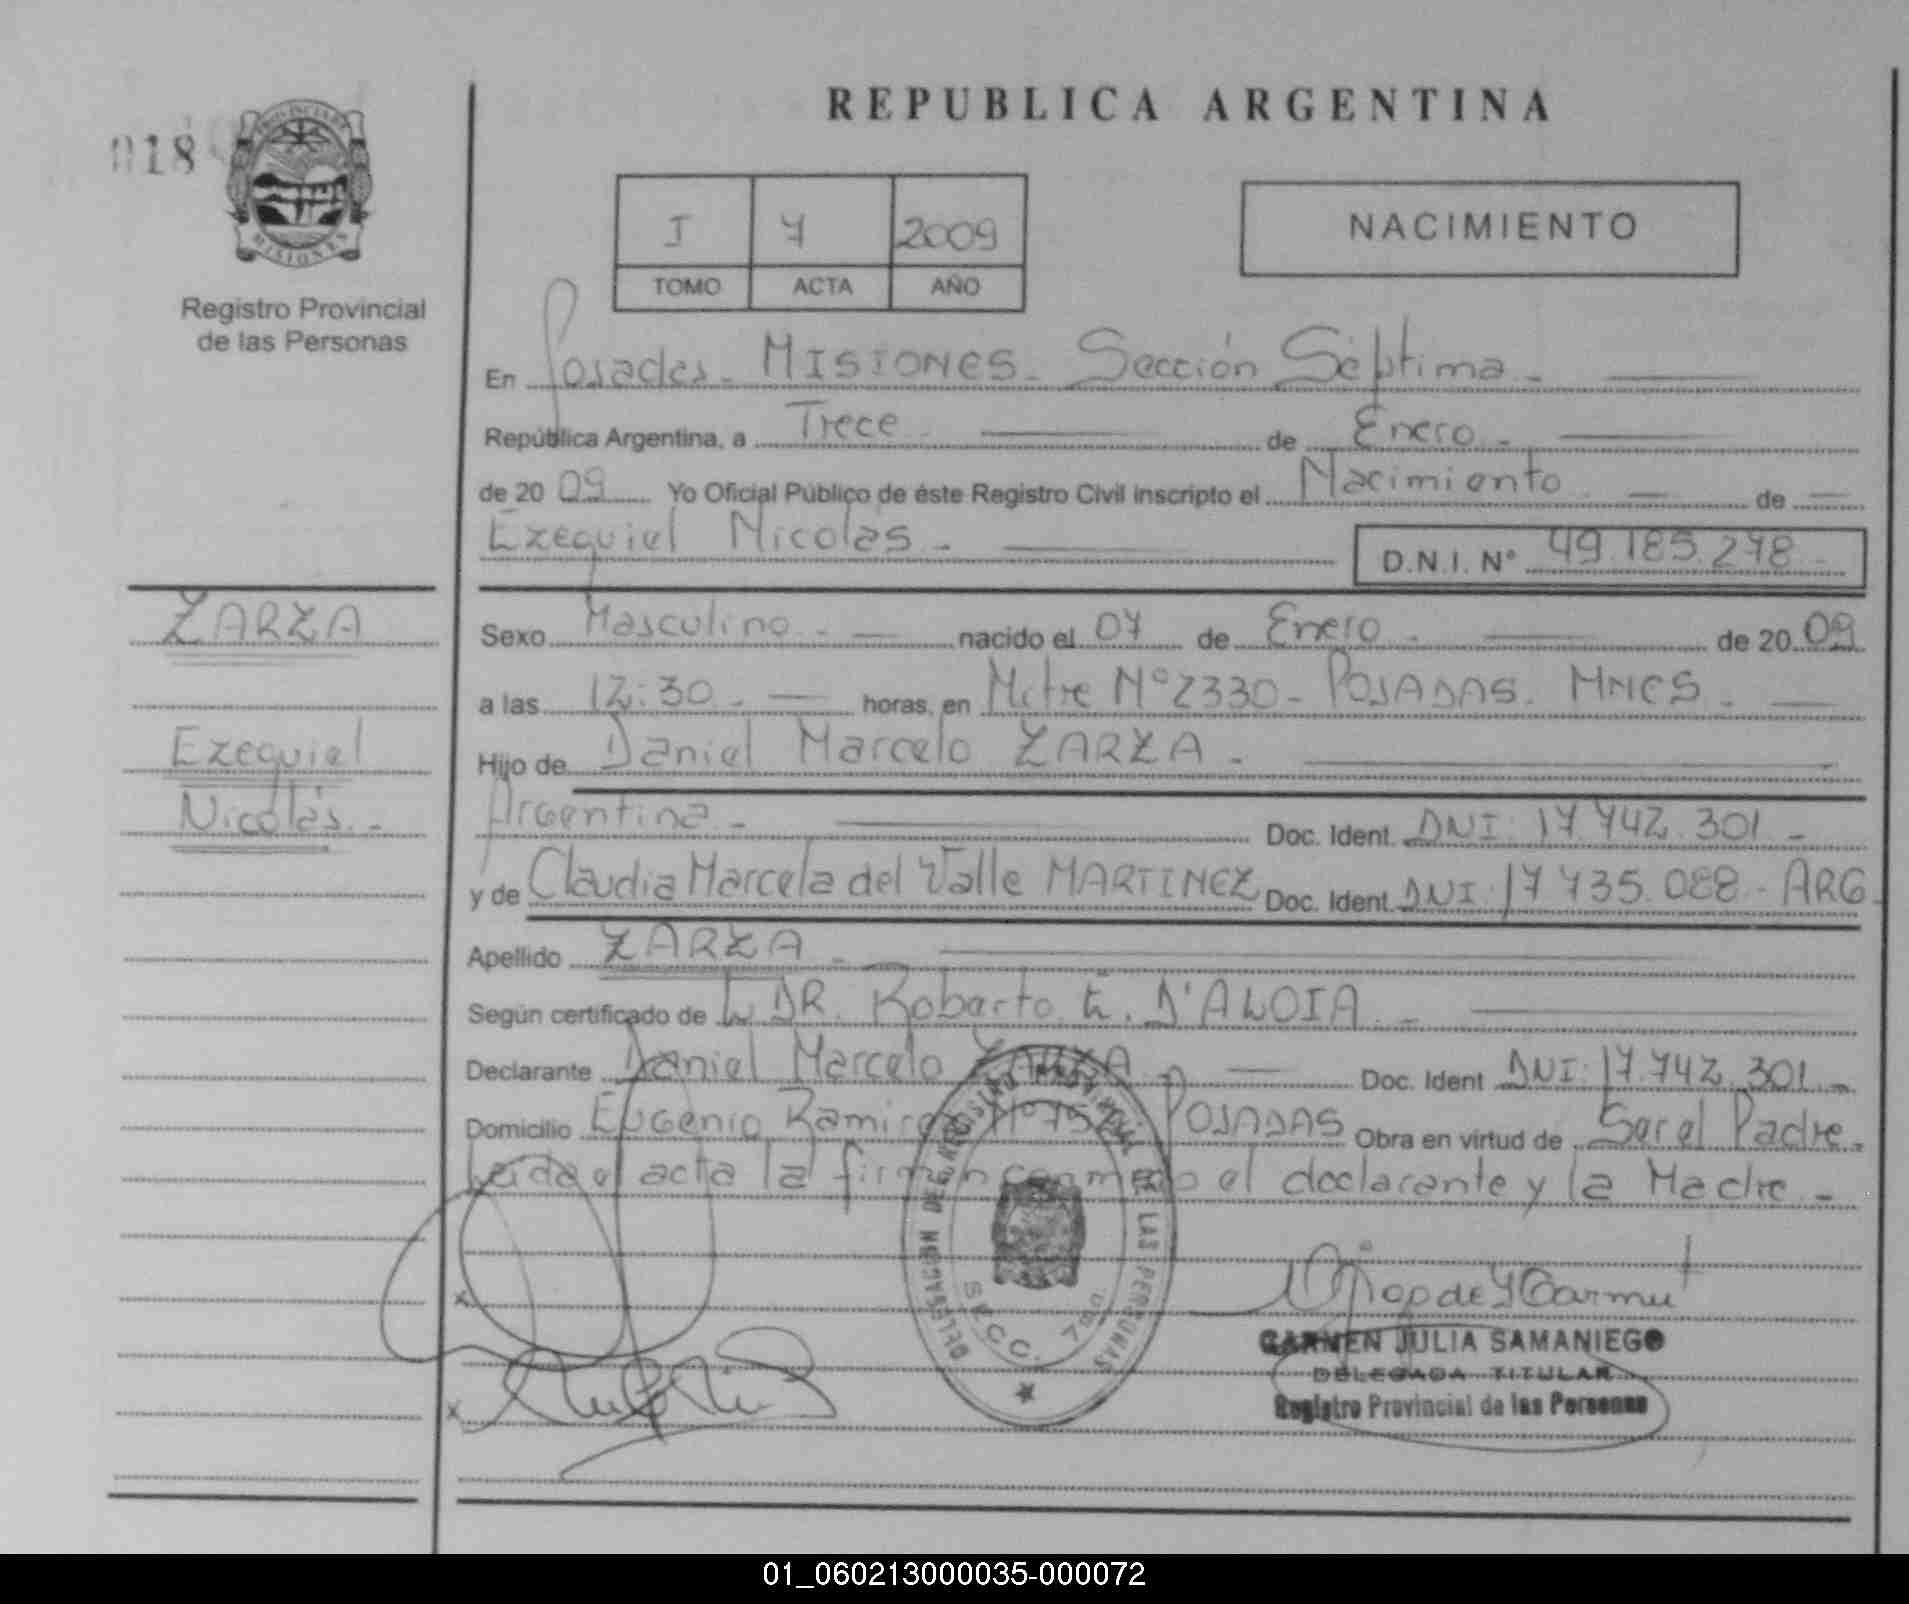 REPUBLICA ARGENTINA
018
PROVINCIA DE
MISIONES
Registro Provincial
de las Personas
I 7 2009
TOMO ACTA AÑO
NACIMIENTO
En Posadas - MISIONES - Sección Séptima -
República Argentina, a Trece - de Enero -
de 20 09 Yo Oficial Público de éste Registro Civil inscripto el Nacimiento de
Ezequiel Nicolás - D.N.I. N° 49.185.278 -
ZARZA
Ezequiel
Nicolás. -
Sexo Masculino - nacido el 07 de Enero - de 20 09
a las 12:30 - horas, en Mitre N° 2330 - POSADAS. MNES -
Hijo de Daniel Marcelo ZARZA -
Argentina - Doc. Ident. DNI: 17.742.301 -
y de Claudia Marcela del Valle MARTINEZ Doc. Ident. DNI: 17 735.088 - ARG.
Apellido ZARZA -
Según certificado de DR. Roberto E. D'ALOIA -
Declarante Daniel Marcelo ZARZA - Doc. Ident DNI: 17.742.301 -
Domicilio Eugenio Ramirez N° POSADAS Obra en virtud de Ser el Padre -
Leida el acta la firman conmigo el declarante y la Madre -
x
x
DELEGACION DEL REGISTRO PROVINCIAL DE LAS PERSONAS
SECC. 7ma
CARMEN JULIA SAMANIEGO
DELEGADA TITULAR
Registro Provincial de las Personas
01_060213000035-000072